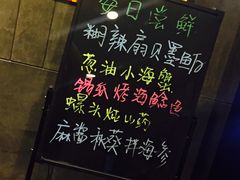 每日尝鲜
糊辣扇贝墨鱼
葱油小海蟹
锡纸烤海鲶鱼
螺头炖山药
麻酱秋葵拌海参